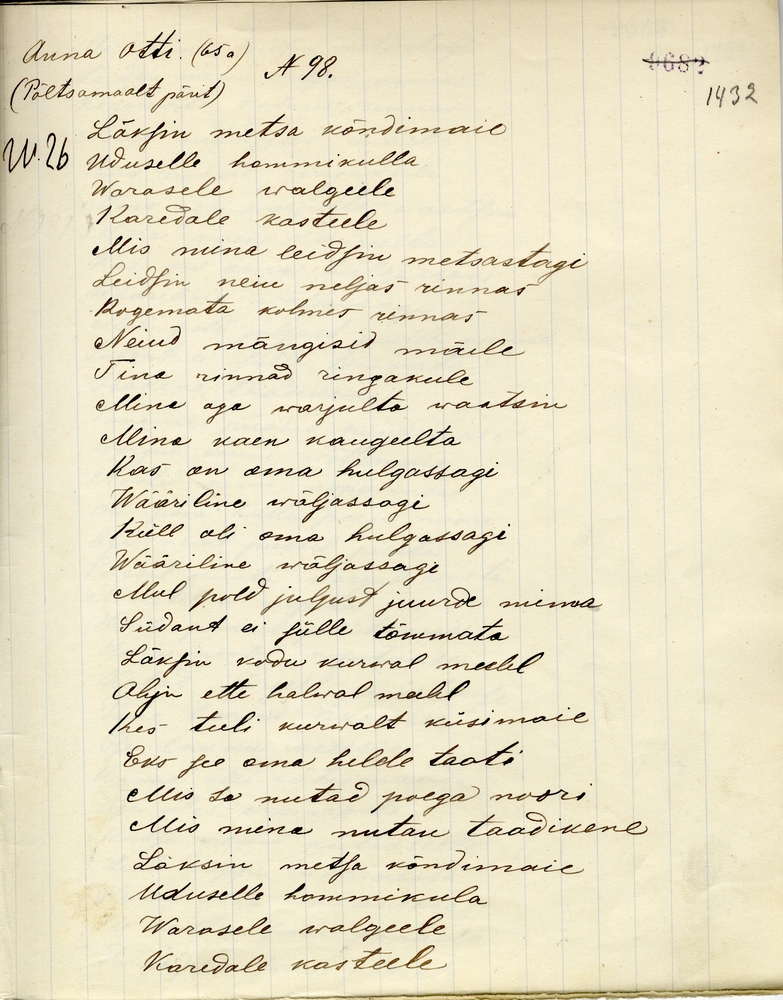 Anna Otti. (65a)
(Põltsamaalt pärit)
N 98.
1432
26
Läksin metsa kõndimaie
Uduselle hommikulla
Warasele walgeele
Karedale kasteele
Mis mina leidsin metsastagi
Leidsin neiu neljas rinnas
Kogemata kolmes rinnas
Neiud mängisid mäele
Tina rinnad ringakule
Mina aga warjulta waatsin
Mina kaen kaugeelta
Kas on oma hulgassagi
Wääriline wäljassagi
Küll oli oma hulgassagi
Wääriline wäljassagi
Mul pold julgust juurde minna
Südant ei sülle tõmmata
Läksin kodu kurwal meelel
Ahju ette halwal meelel
Kes tuli kurwalt küsimaie
Eks see oma helde taati
Mis sa nutad poega noori
Mis mina nutan taadikene
Läksin metsa kõndimaie
Uduselle hommikula
Warasele walgeele
Karedale kasteele